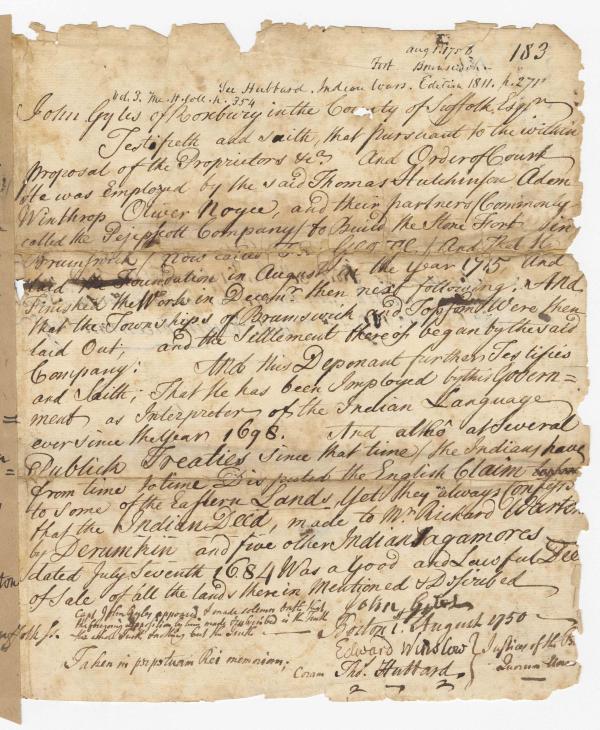 Aug 1. 1750 183
Fort Brunswick
See Hubbard. Indian Wars. Edition 1811. p. 271
Vol. 3. p. 354
John Gyles of Roxbury in the County of Suffolk Esqr
Testifieth and saith, that pursuant to the within
Proposal of the Proprietors &ca And Order of Court
He was Employed by the said Thomas Hutchinson Adam
Winthrop Oliver Noyce, and their partners (Commonly
called the Pejepscott Company) to Build the Stone Fort in
Brunswick (now called And that he
laid Foundation in August in the Year 1715 and
Finished the Work in Decemr. then next following: And
that the Townships of Brunswick and Topsom Were then
laid Out, and the Settlement thereof began by the said
Company: And this Deponant further Testifies
and Saith; That he has been Imployed by this Govern=
ment as Interpreter of the Indian Language
ever since the Year 1698. And altho' at several
Publick Treaties since that time, the Indians have
from time to time Disputed the English Claim
to some of the Eastern Lands, Yet they always Confess
that the Indian Deed, made to Mr Richard Warton
by Derumkin and five other Indian Sagamores
dated July Seventh 1684 Was a Good and Lawful Deed
of Sale of all the lands therein Mentioned & Discribed
John Gyles
Capt John Gyles appeared & made solemn Oath that
the foregoing deposition by him made & subscribed is the Truth
the whole Truth & nothing but the Truth
Boston 1. August 1750
Taken in perpetuam Rei memoriam;
Coram
Edward Winslow
Thos. Hubbard.
Justices of the
Quorum